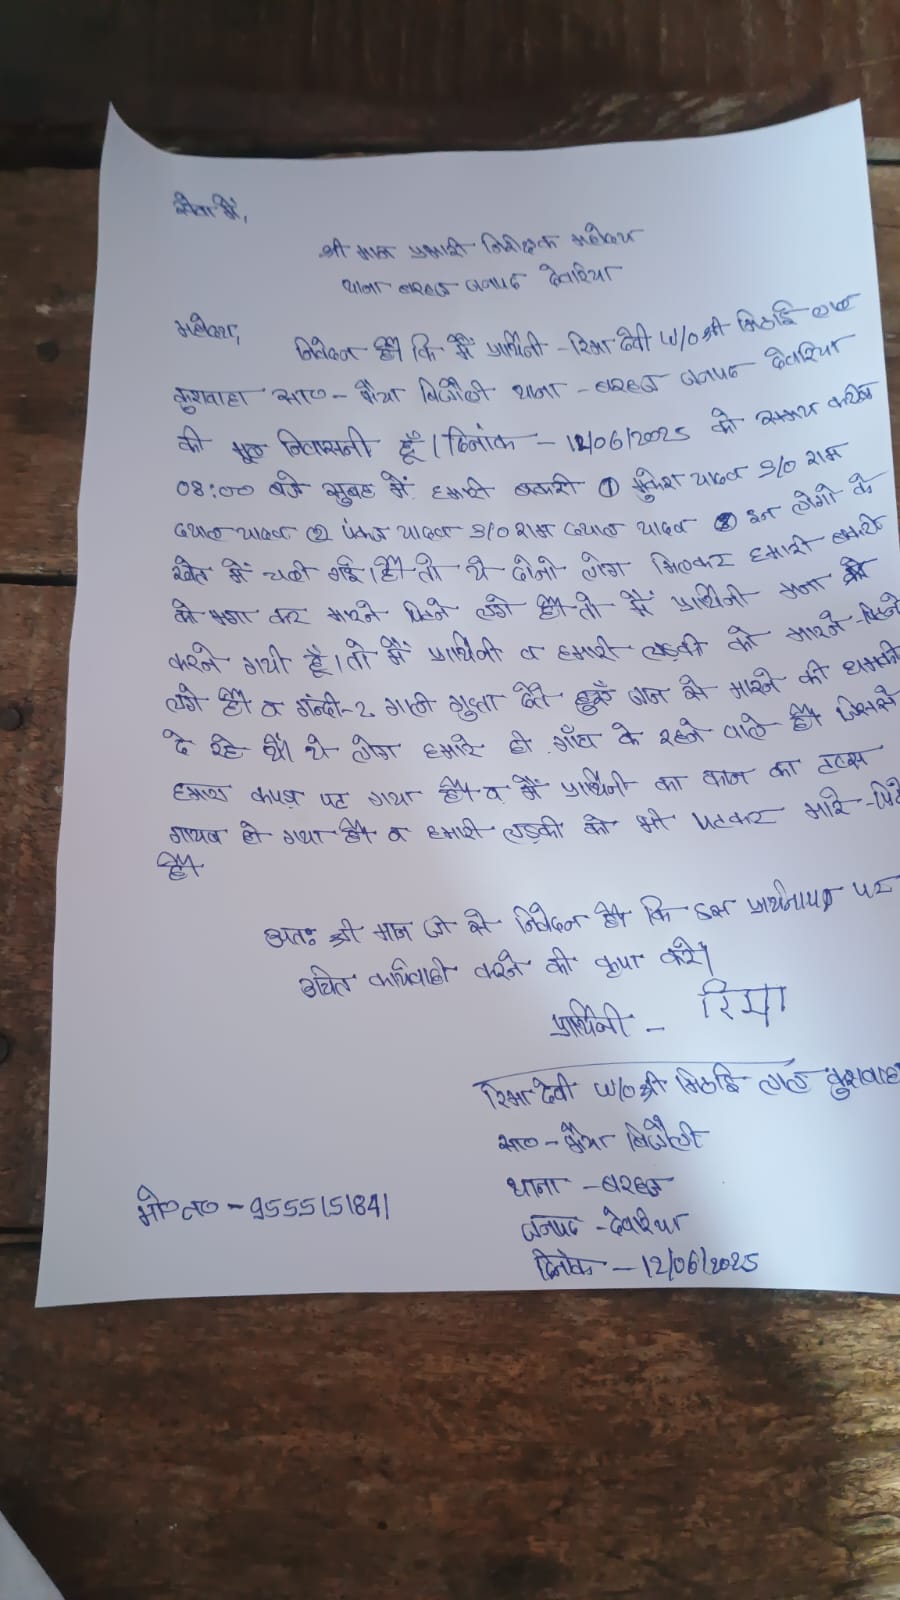 सेवा में,
श्री मान प्रभारी निरीक्षक महोदय
थाना बरहज जनपद देवरिया
महोदय,
निवेदन है कि मैं प्रार्थिनी - रिमा देवी W/O श्री मिठाई लाल
कुशवाहा सा० - भैया बिजौली थाना - बरहज जनपद देवरिया
की मूल निवासनी हूँ। दिनांक - 12/06/2025 को समय करीब
08:00 बजे सुबह में हमारी बकरी ① मुकेश यादव S/O राम
दयाल यादव ② पंकज यादव S/O राम दयाल यादव इन लोगो के
खेत में चली गई है। तो ये दोनो लोग मिलकर हमारी बकरी
को भगा कर मारने पिटने लगे है। तो मैं प्रार्थिनी मना
करने गयी हूँ। तो मैं प्रार्थिनी व हमारी लड़की को मारने - पिटने
लगे है। व गन्दी-2 गाली गुप्ता देते हुऐ जान से मारने की धमकी
दे रहे थे। ये लोग हमारे ही गाँव के रहने वाले है। जिससे
हमारा कपड़ा फट गया है। व मैं प्रार्थिनी का कान का टप्स
गायब हो गया है। व हमारी लड़की को भी पटकर मारे - पिटे
है।
अतः श्री मान जी से निवेदन है कि इस प्रार्थनापत्र पर
उचित कार्यवाही करने की कृपा करें।
प्रार्थिनी - रिमा
रिमा देवी W/O श्री मिठाई लाल कुशवाहा
सा० - भैया बिजौली
थाना - बरहज
मो० न० - 9555151841
जनपद - देवरिया
दिनांक - 12/06/2025